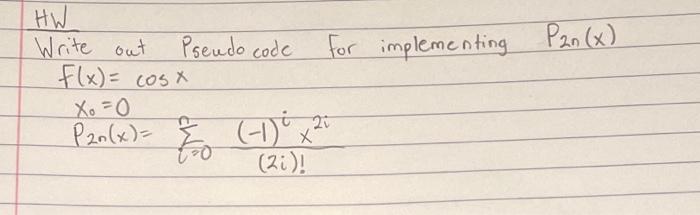 HW
Write out Pseudo code for implementing P₂ₙ(x)
f(x) = cos x
x₀ = 0
P₂ₙ(x) = ∑ⁿᵢ₌₀ (-1)ⁱ x²ⁱ / (2i)!